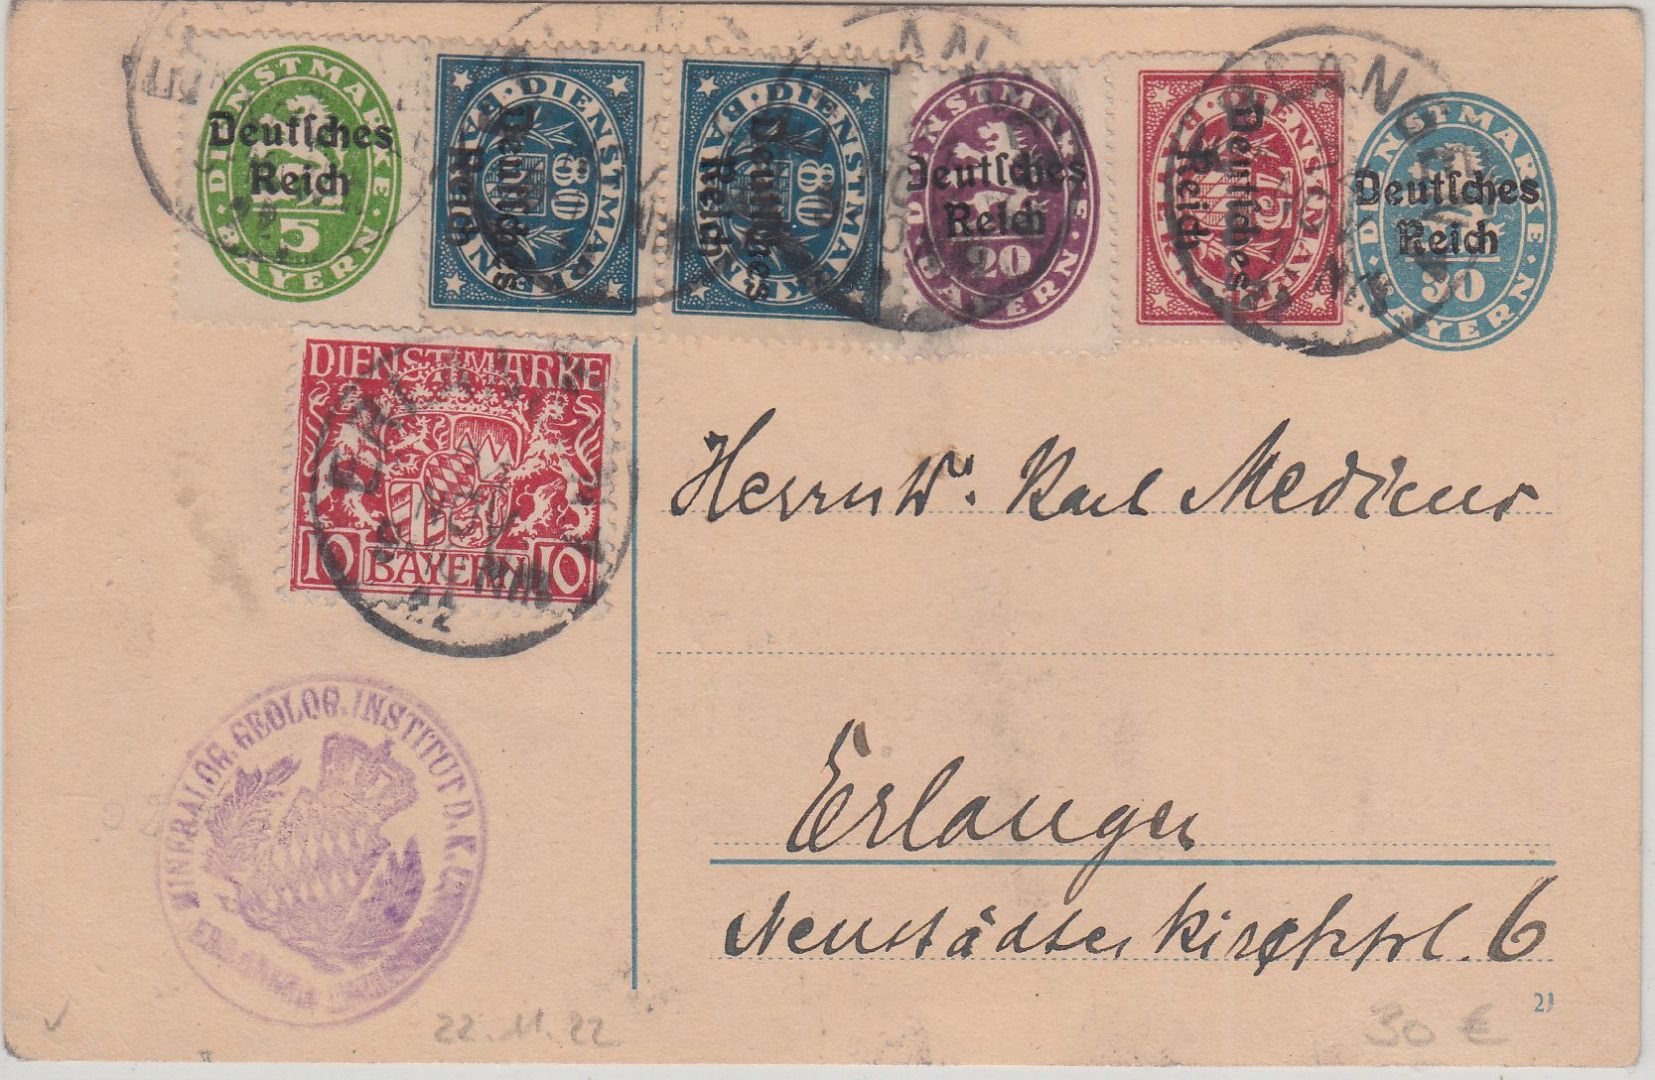 DIENSTMARKE · BAYERN ·
5
Deutsches
Reich
DIENSTMARKE · BAYERN ·
80
Deutsches
Reich
DIENSTMARKE · BAYERN ·
80
Deutsches
Reich
DIENSTMARKE · BAYERN ·
20
Deutsches
Reich
DIENSTMARKE
75
Deutsches
Reich
DIENSTMARKE · BAYERN ·
30
Deutsches
Reich
ERLANG
DIENSTMARKE
10 BAYERN 10
Herrn W. Karl Medicus
Erlangen
Neustädter Kirchpl. 6
MINERALOG. GEOLOG. INSTITUT D. K.
22.11.22
21
30 €